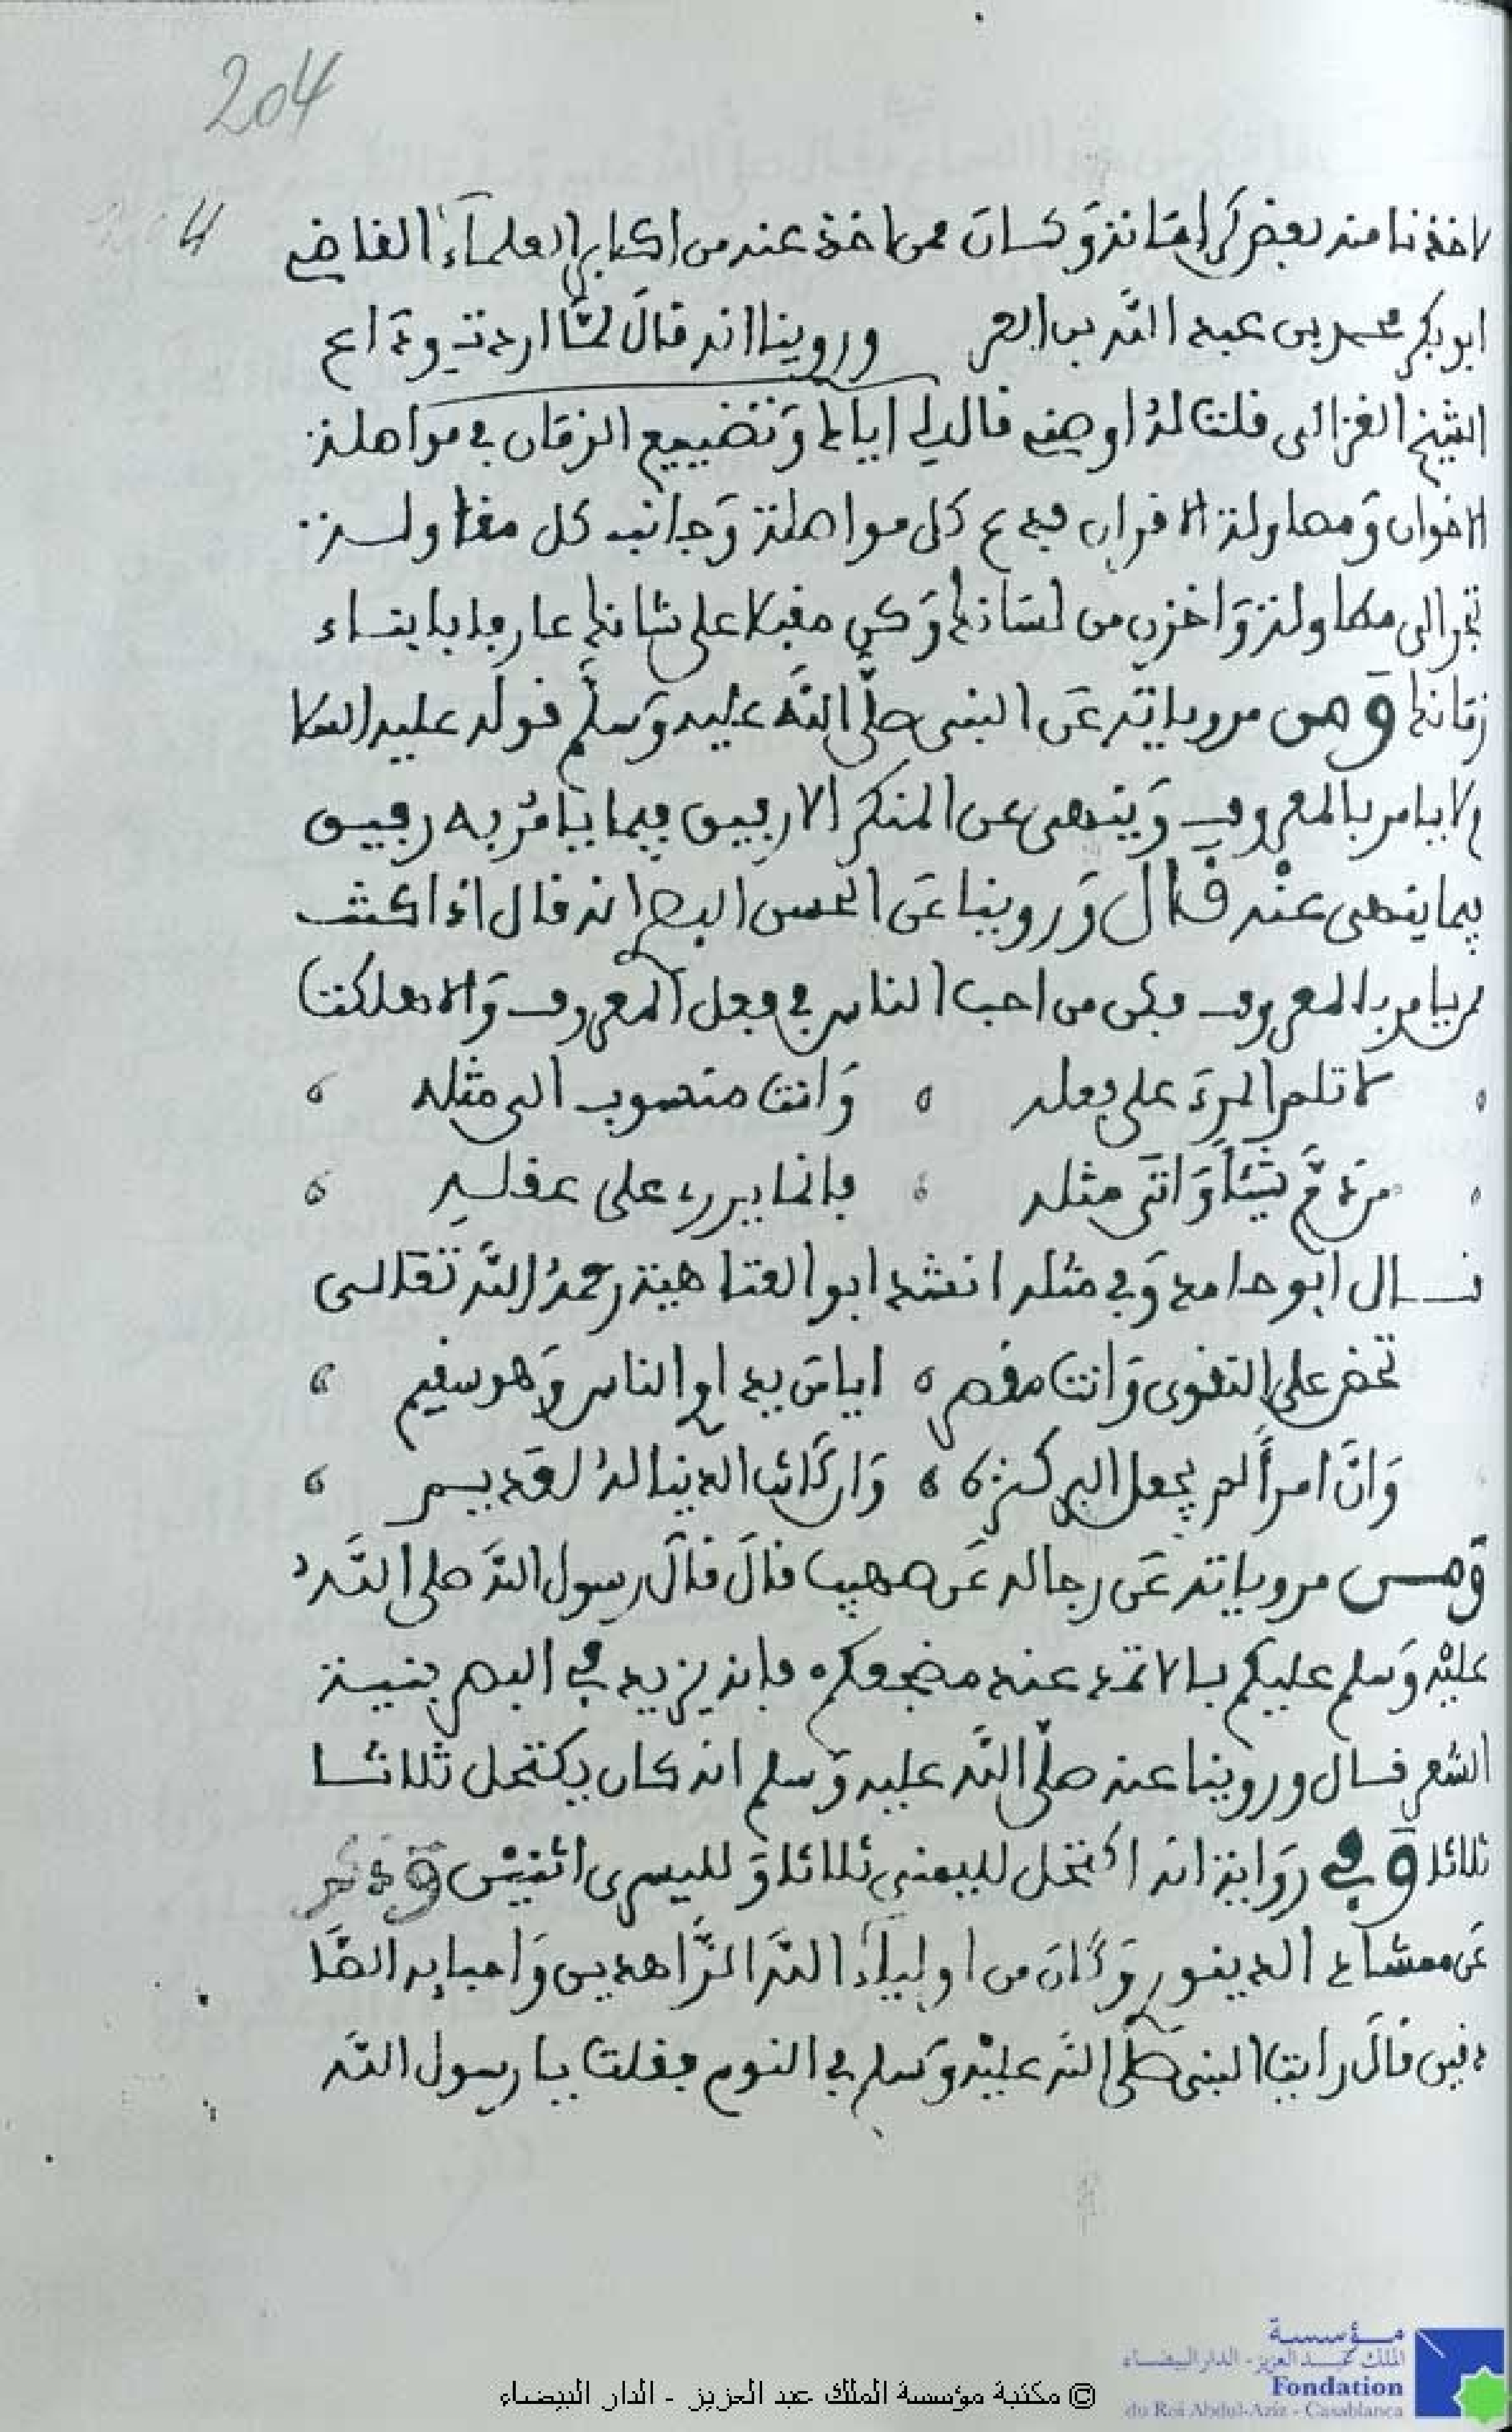 204
4
لاخذنا منه بعض كرامَاته وَكـــان ممن اخذ عنه من اكابر العلمـاء القاضي
ابو بكر محمد بن عبد الله بن العر وروينا انه قال لمَّا اردت وداع
الشيخ الغزالي قلت لهُ اوصني قال لي اياك وَتضييع الزمَان في مواصلة
الاخوان وَمصاولة الاقران فدع كل مواصلة وَجانب كل مقاولـــة
تجر الى مطاولة وَاخزن من لسَانك وَكن مقبلا على شانك عارفا بابنـاء
زمَانك وَمن مروياته عَن النبي صلَّى اللَّه عليه وَسلَّم قوله عليه السلا
م لا يامر بالمعروف وَينهى عن المنكر الا رفيق فيما يامُر به رفيـق
فيما ينهى عنْه قـال وَروينا عَن الحسن البصر انه قال اذا كنـت
ممن يامر بالمعروف فكن من احب الناس في فعل المعروف وَالا هلكت
لا تلم المرءَ على فعله وَانت منسوب الى مثله
مَن ذمَّ شيئاً وَاتَى مثله فانما يزرى على عقلـه
قـــال ابو حامد وَفي مثله انشد ابو العتاهية رحمهُ اللَّه تعَالـى
تحض على التقوى وَانت مقصر ايا مَن يداو الناس وَهو سقيم
وَانَّ امرأً لم يجعل البر كنزه وَان كَانت الدنيا لهُ لعَديـم
وَمــن مروياته عَن رجاله عَن صهيب قالَ قالَ رسول اللَّه صلى اللَّه
عليْه وَسلم عليكم بالاثمد عند مضجعكم فانه يزيد في البصر بنبيـت
الشعر قـال وروينا عنه صلَّى اللَّه عليه وَسلم انه كان يكتحل ثلاثـا
ثلاثا وَفي رِوَاية انه اكتحل لليمنى ثلاثا وَلليسرى اثنيْن وَذكر
عَن ممشاد الدينور وَكَانَ من اولياءِ اللَّه الزَّاهدين وَاحبابه الصَّا
دقين قالَ رايت النبي صلَّى اللَّه عليْه وَسلم في النوم فقلت يا رسول اللَّه
مؤسسة
الملك عبد العزيز - الدار البيضاء
Fondation
du Roi Abdul-Aziz - Casablanca
© مكتبة مؤسسة الملك عبد العزيز - الدار البيضاء